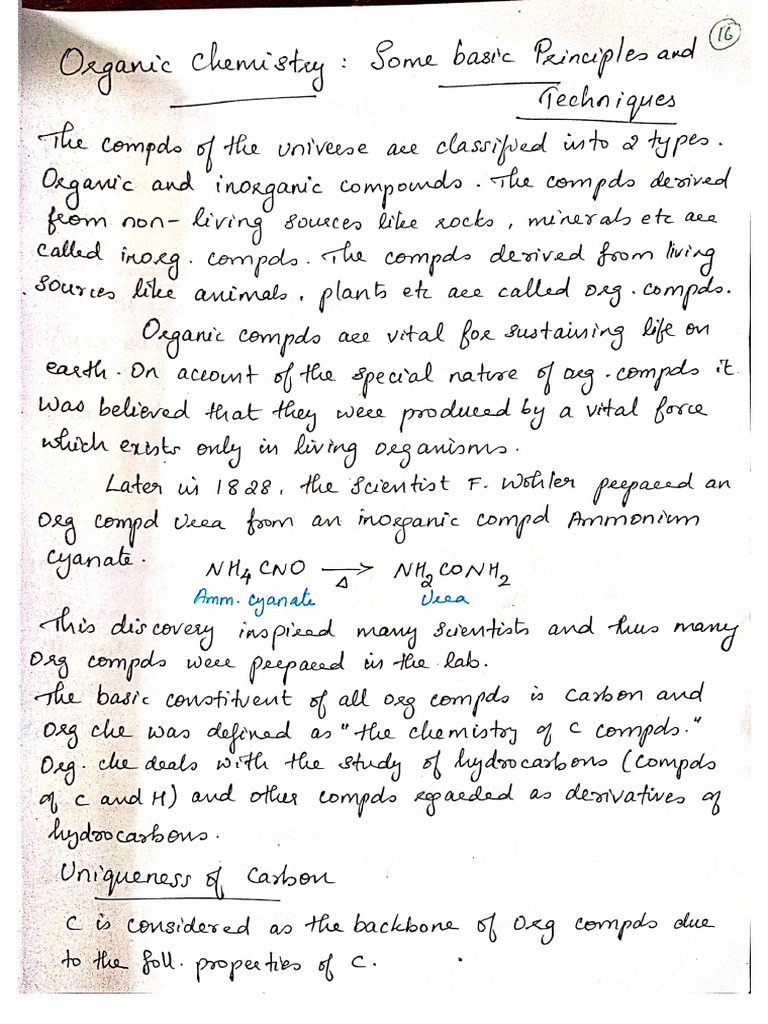 16
Organic Chemistry : Some basic Principles and
Techniques
The compds of the universe are classified into 2 types.
Organic and inorganic compounds. The compds derived
from non-living sources like rocks, minerals etc are
called inorg. compds. The compds derived from living
sources like animals, plants etc are called org. compds.
Organic compds are vital for sustaining life on
earth. On account of the special nature of org. compds it
was believed that they were produced by a vital force
which exists only in living organisms.
Later in 1828, the scientist F. Wohler prepared an
Org compd Urea from an inorganic compd Ammonium
cyanate.
NH4 CNO ⟶ NH2 CONH2
Δ
Amm. cyanate Urea
This discovery inspired many scientists and thus many
Org compds were prepared in the lab.
The basic constituent of all org compds is carbon and
Org che was defined as "the chemistry of C compds."
Org. che deals with the study of hydrocarbons (compds
of C and H) and other compds regarded as derivatives of
hydrocarbons.
Uniqueness of Carbon
C is considered as the backbone of Org compds due
to the foll. properties of C.